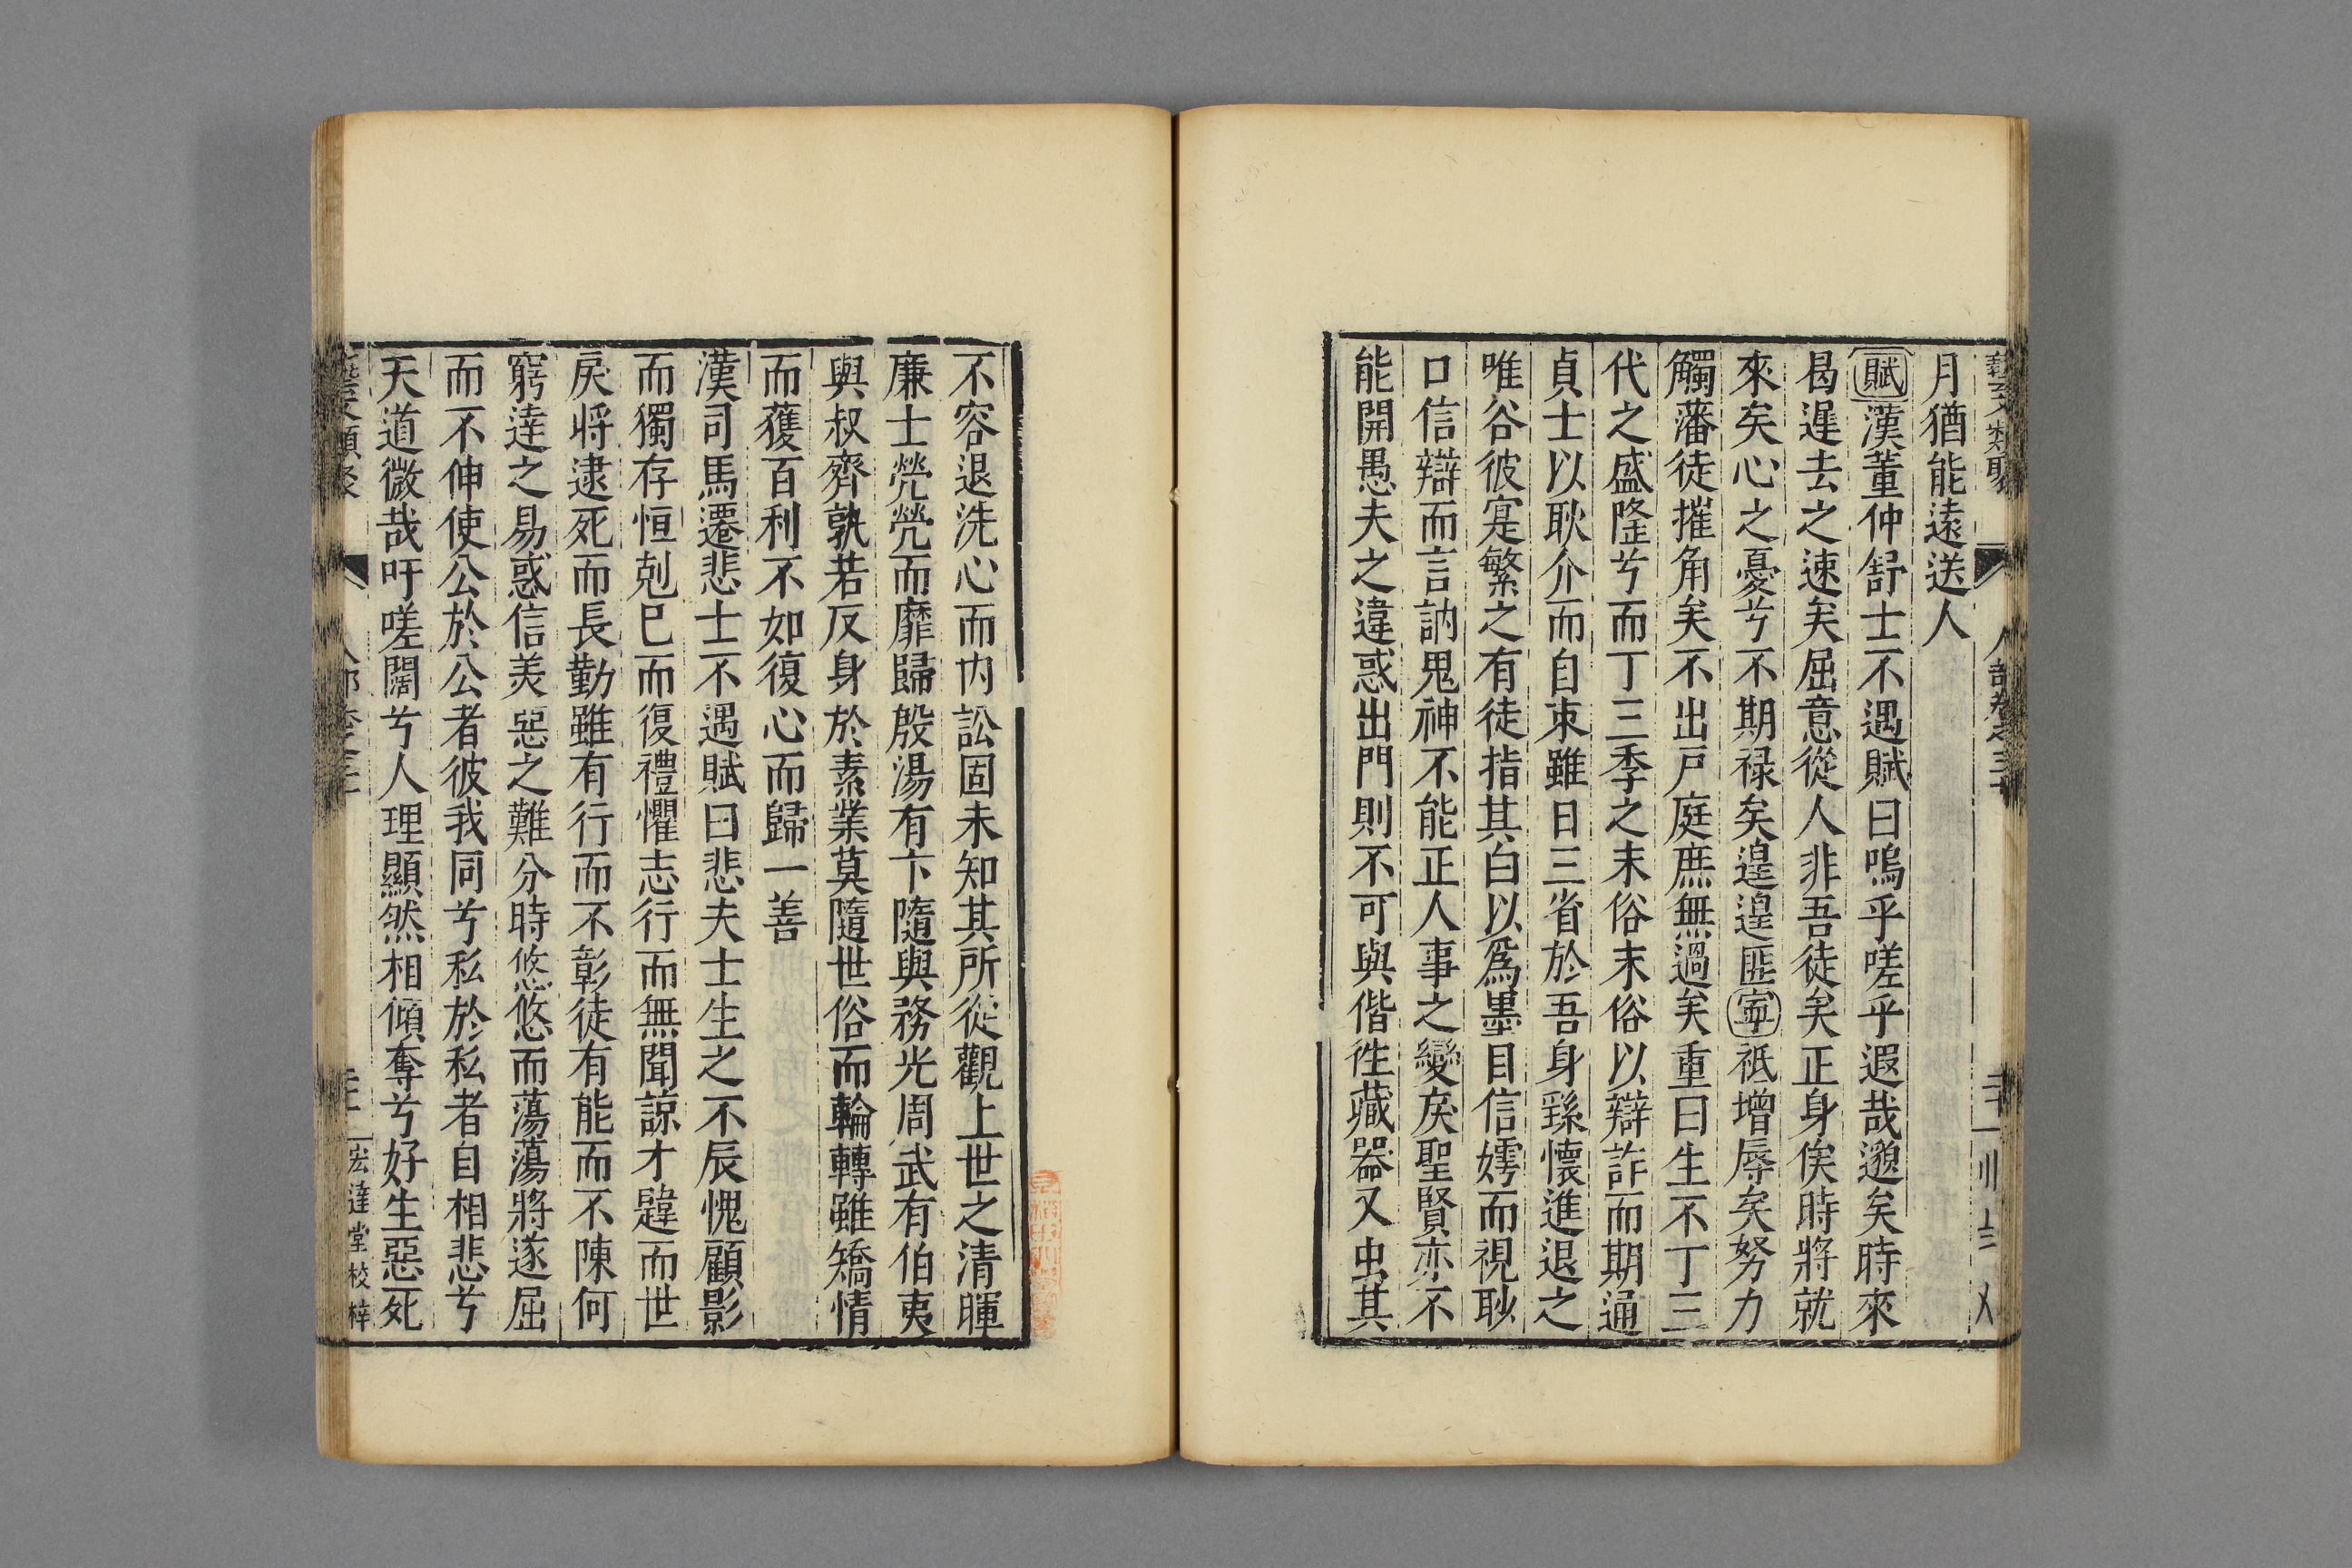 月猶能遠送人
賦漢董仲舒士不遇賦曰嗚乎嗟乎遐哉邈矣時來
曷遟去之速矣屈意從人非吾徒矣正身俟時將就
來矣心之憂兮不期禄矣遑遑匪寧祗增辱矣努力
觸藩徒摧角矣不出戸庭庶無過矣重曰生不丁三
代之盛隆兮而丁三季之末俗末俗以辯詐而期通
貞士以耿介而自束雖日三省於吾身繇懷進退之
唯谷彼寔繁之有徒指其白以爲墨目信嫮而視眇
口信辯而言訥鬼神不能正人事之變戾聖賢亦不
能開愚夫之違惑出門則不可與偕徃藏器又虫其
不容退洗心而内訟固未知其所從觀上世之清暉
廉士煢煢而靡歸殷湯有卞隨與務光周武有伯夷
與叔齊孰若反身於素業莫隨世俗而輪轉雖矯情
而獲百利不如復心而歸一善
漢司馬遷悲士不遇賦曰悲夫士生之不辰愧顧影
而獨存恒剋已而復禮懼志行而無聞諒才韙而世
戾將逮死而長勤雖有行而不彰徒有能而不陳何
窮逹之易惑信美惡之難分時悠悠而蕩蕩將遂屈
而不伸使公於公者彼我同兮私於私者自相悲兮
天道微哉吁嗟闊兮人理顯然相傾奪兮好生惡死
宏逹堂校梓